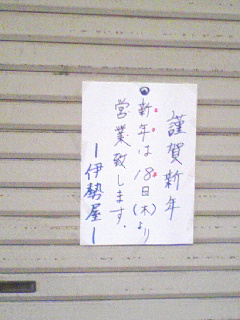 謹賀新年
新年は18日(木)より
営業致します.
ー伊勢屋ー